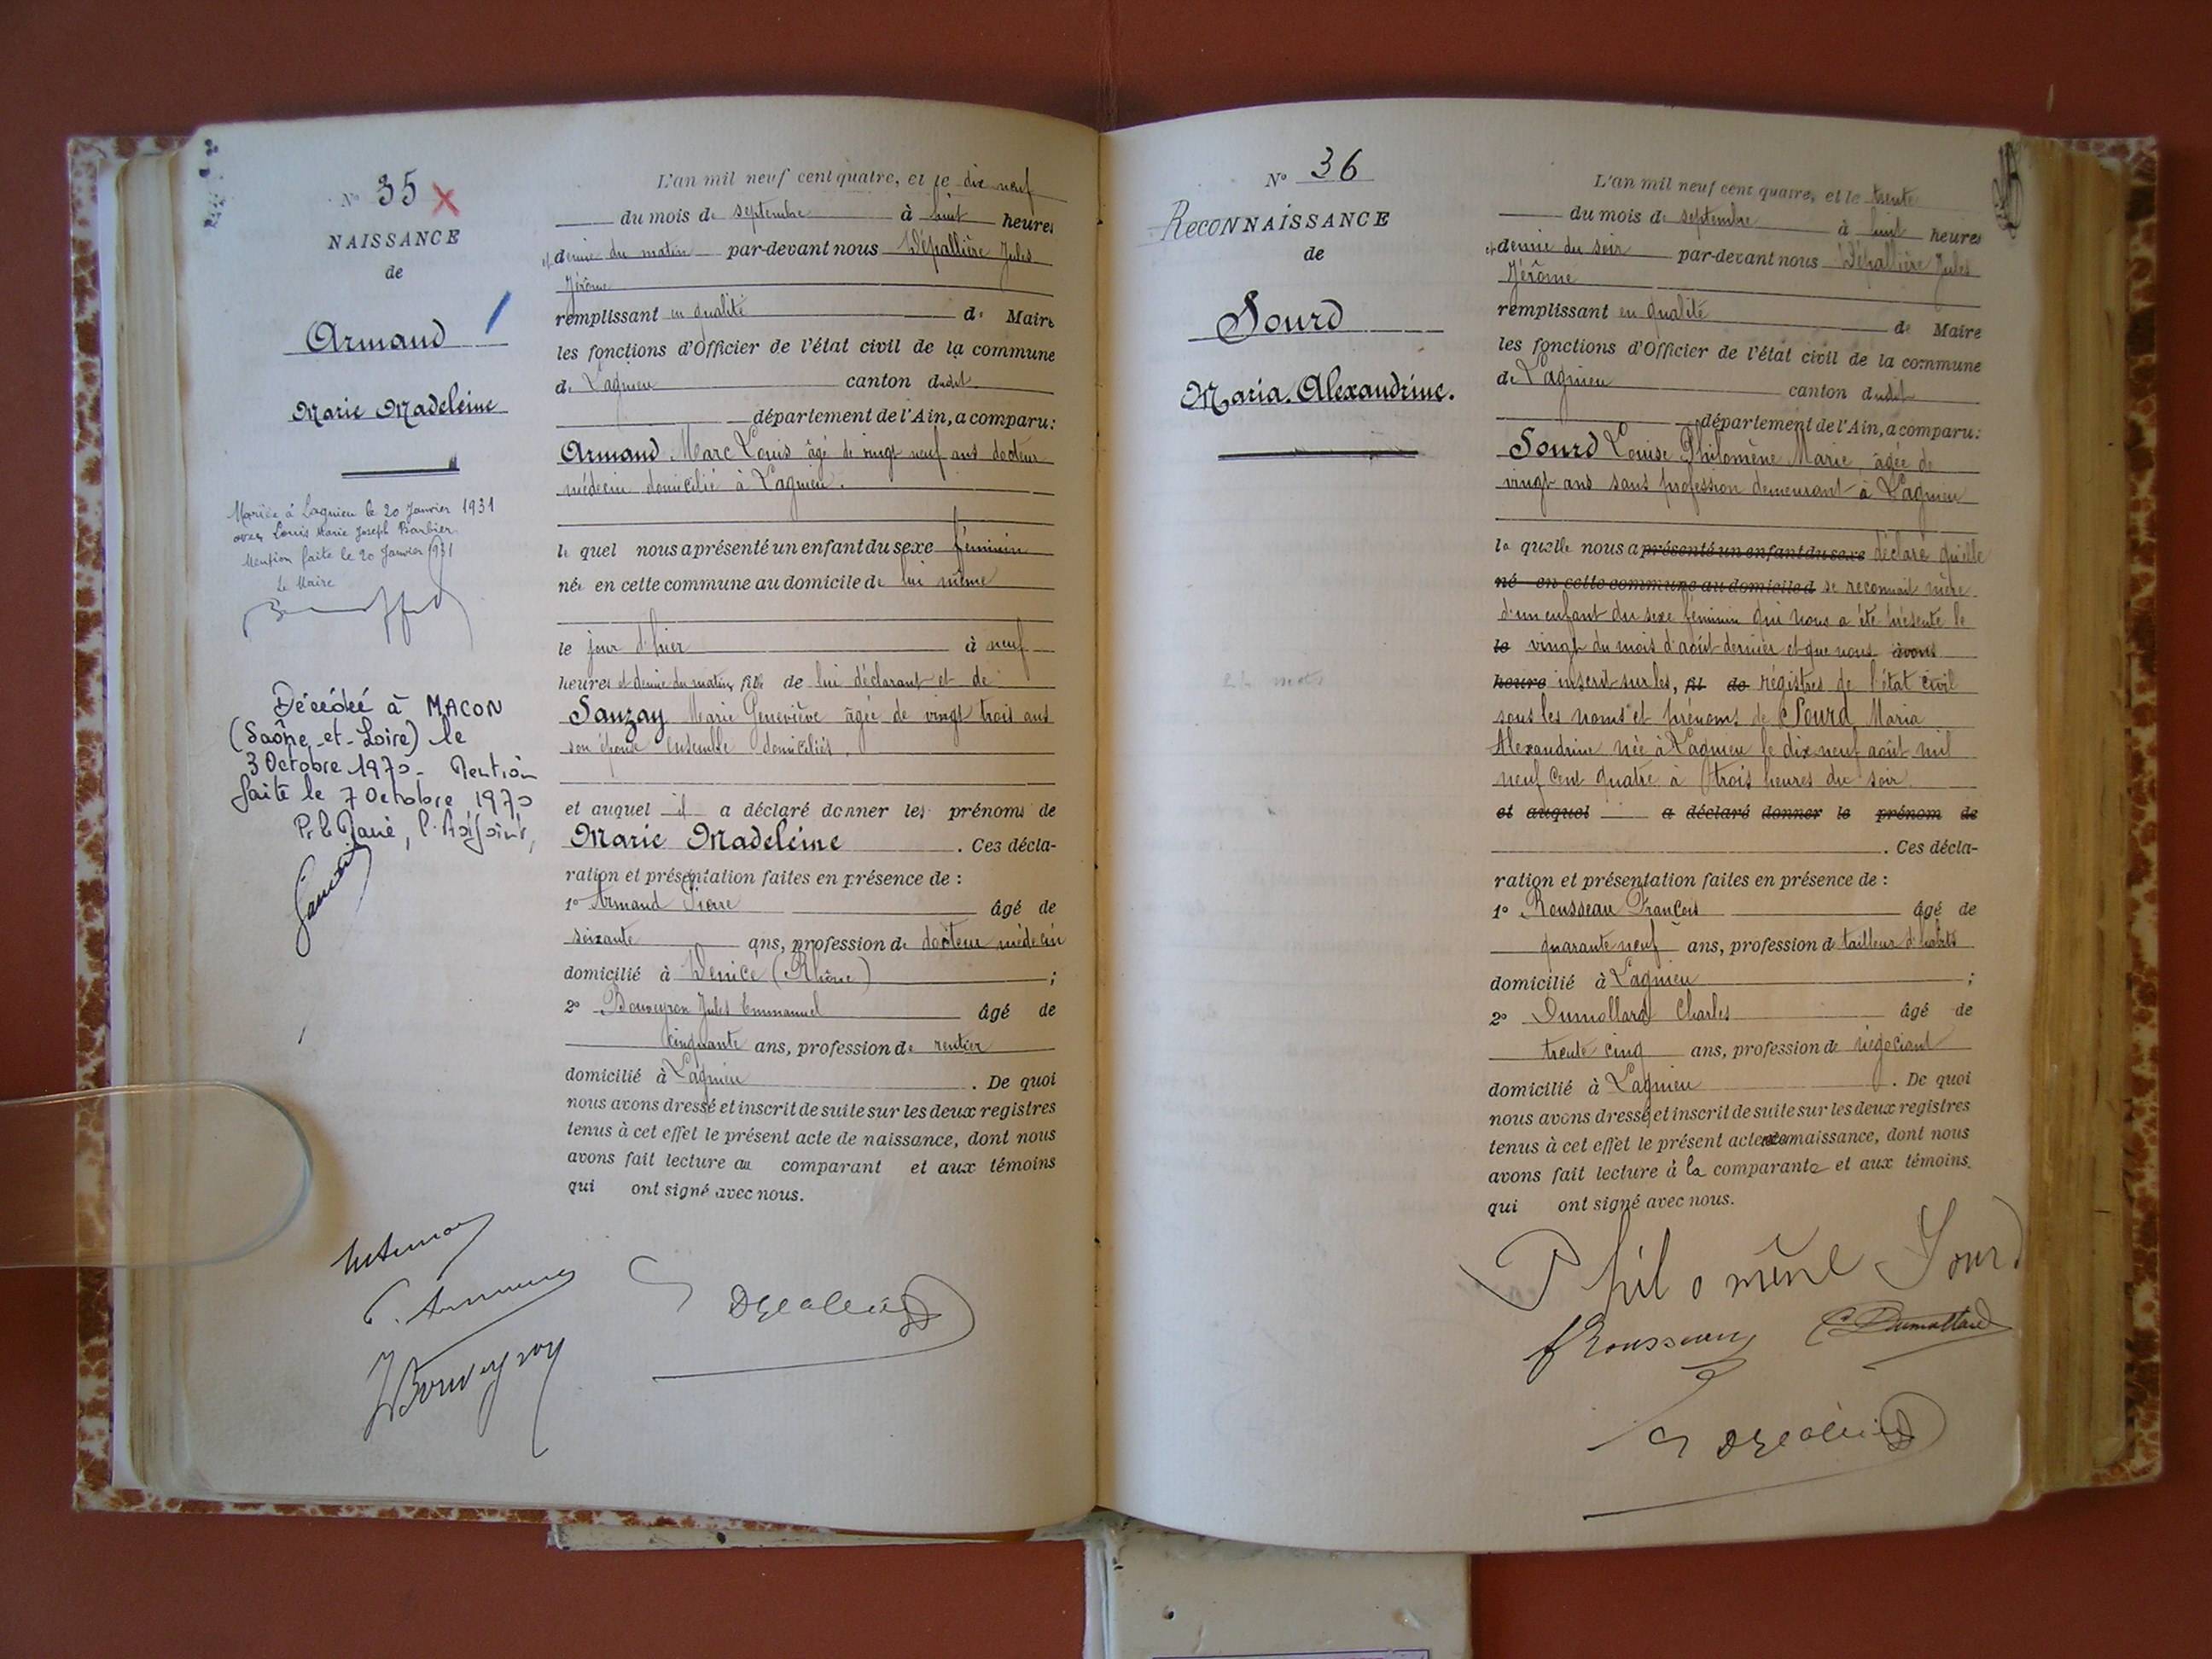 N° 35 X
NAISSANCE
de
Armand
Marie Madeleine
Mariée à Lagnieu le 20 Janvier 1931
avec Louis Marie Joseph Barbier
Mention faite le 20 Janvier 1931
Le Maire
Décédée à MACON
(Saône-et-Loire) le
3 Octobre 1970. Mention
faite le 7 Octobre 1970
Pr le Maire, l'Adjoint,
L'an mil neuf cent quatre, et le dix neuf
du mois de septembre à huit heures
et demie du matin par-devant nous Dépallière Jules
Jérôme
remplissant en qualité de Maire
les fonctions d'Officier de l'état civil de la commune
de Lagnieu canton dudit
département de l'Ain, a comparu:
Armand Marc Louis âgé de vingt neuf ans docteur
médecin domicilié à Lagnieu.
le quel nous a présenté un enfant du sexe féminin
née en cette commune au domicile de lui même
le jour d'hier à neuf
heures et demie du matin, fille de lui déclarant et de
Sauzay Marie Geneviève âgée de vingt trois ans
son épouse ensemble domiciliés.
et auquel il a déclaré donner les prénoms de
Marie Madeleine . Ces décla-
ration et présentation faites en présence de :
1° Armand Pierre âgé de
soixante ans, profession de docteur médecin
domicilié à Denicé (Rhône) ;
2° Bouveyron Jules Emmanuel âgé de
cinquante ans, profession de rentier
domicilié à Lagnieu . De quoi
nous avons dressé et inscrit de suite sur les deux registres
tenus à cet effet le présent acte de naissance, dont nous
avons fait lecture au comparant et aux témoins
qui ont signé avec nous.
P. Armand
J Bouveyron
N° 36
ReconNAISSANCE
de
Sourd
Maria Alexandrine.
L'an mil neuf cent quatre, et le trente
du mois de septembre à huit heures
et demie du soir par-devant nous Dépallière Jules
Jérôme
remplissant en qualité de Maire
les fonctions d'Officier de l'état civil de la commune
de Lagnieu canton dudit
département de l'Ain, a comparu:
Sourd Louise Philomène Marie, âgée de
vingt ans sans profession demeurant à Lagnieu
la quelle nous a présenté un enfant du sexe déclaré qu'elle
né en cette commune au domicile d se reconnait mère
d'un enfant du sexe féminin qui nous a été présenté le
le vingt du mois d'août dernier et que nous avons
heure inscrit sur les, fil de régistres de l'état civil
sous les noms et prénoms de Sourd Maria
Alexandrine née à Lagnieu le dix neuf août mil
neuf cent quatre à trois heures du soir
et auquel a déclaré donner le prénom de
. Ces décla-
ration et présentation faites en présence de :
1° Rousseau François âgé de
quarante neuf ans, profession de tailleur d'habits
domicilié à Lagnieu ;
2° Dumollard Charles âgé de
trente cinq ans, profession de négociant
domicilié à Lagnieu . De quoi
nous avons dressé et inscrit de suite sur les deux registres
tenus à cet effet le présent acte reconnaissance, dont nous
avons fait lecture à la comparante et aux témoins
qui ont signé avec nous.
Philomène Sourd
f Rousseau C Dumollard